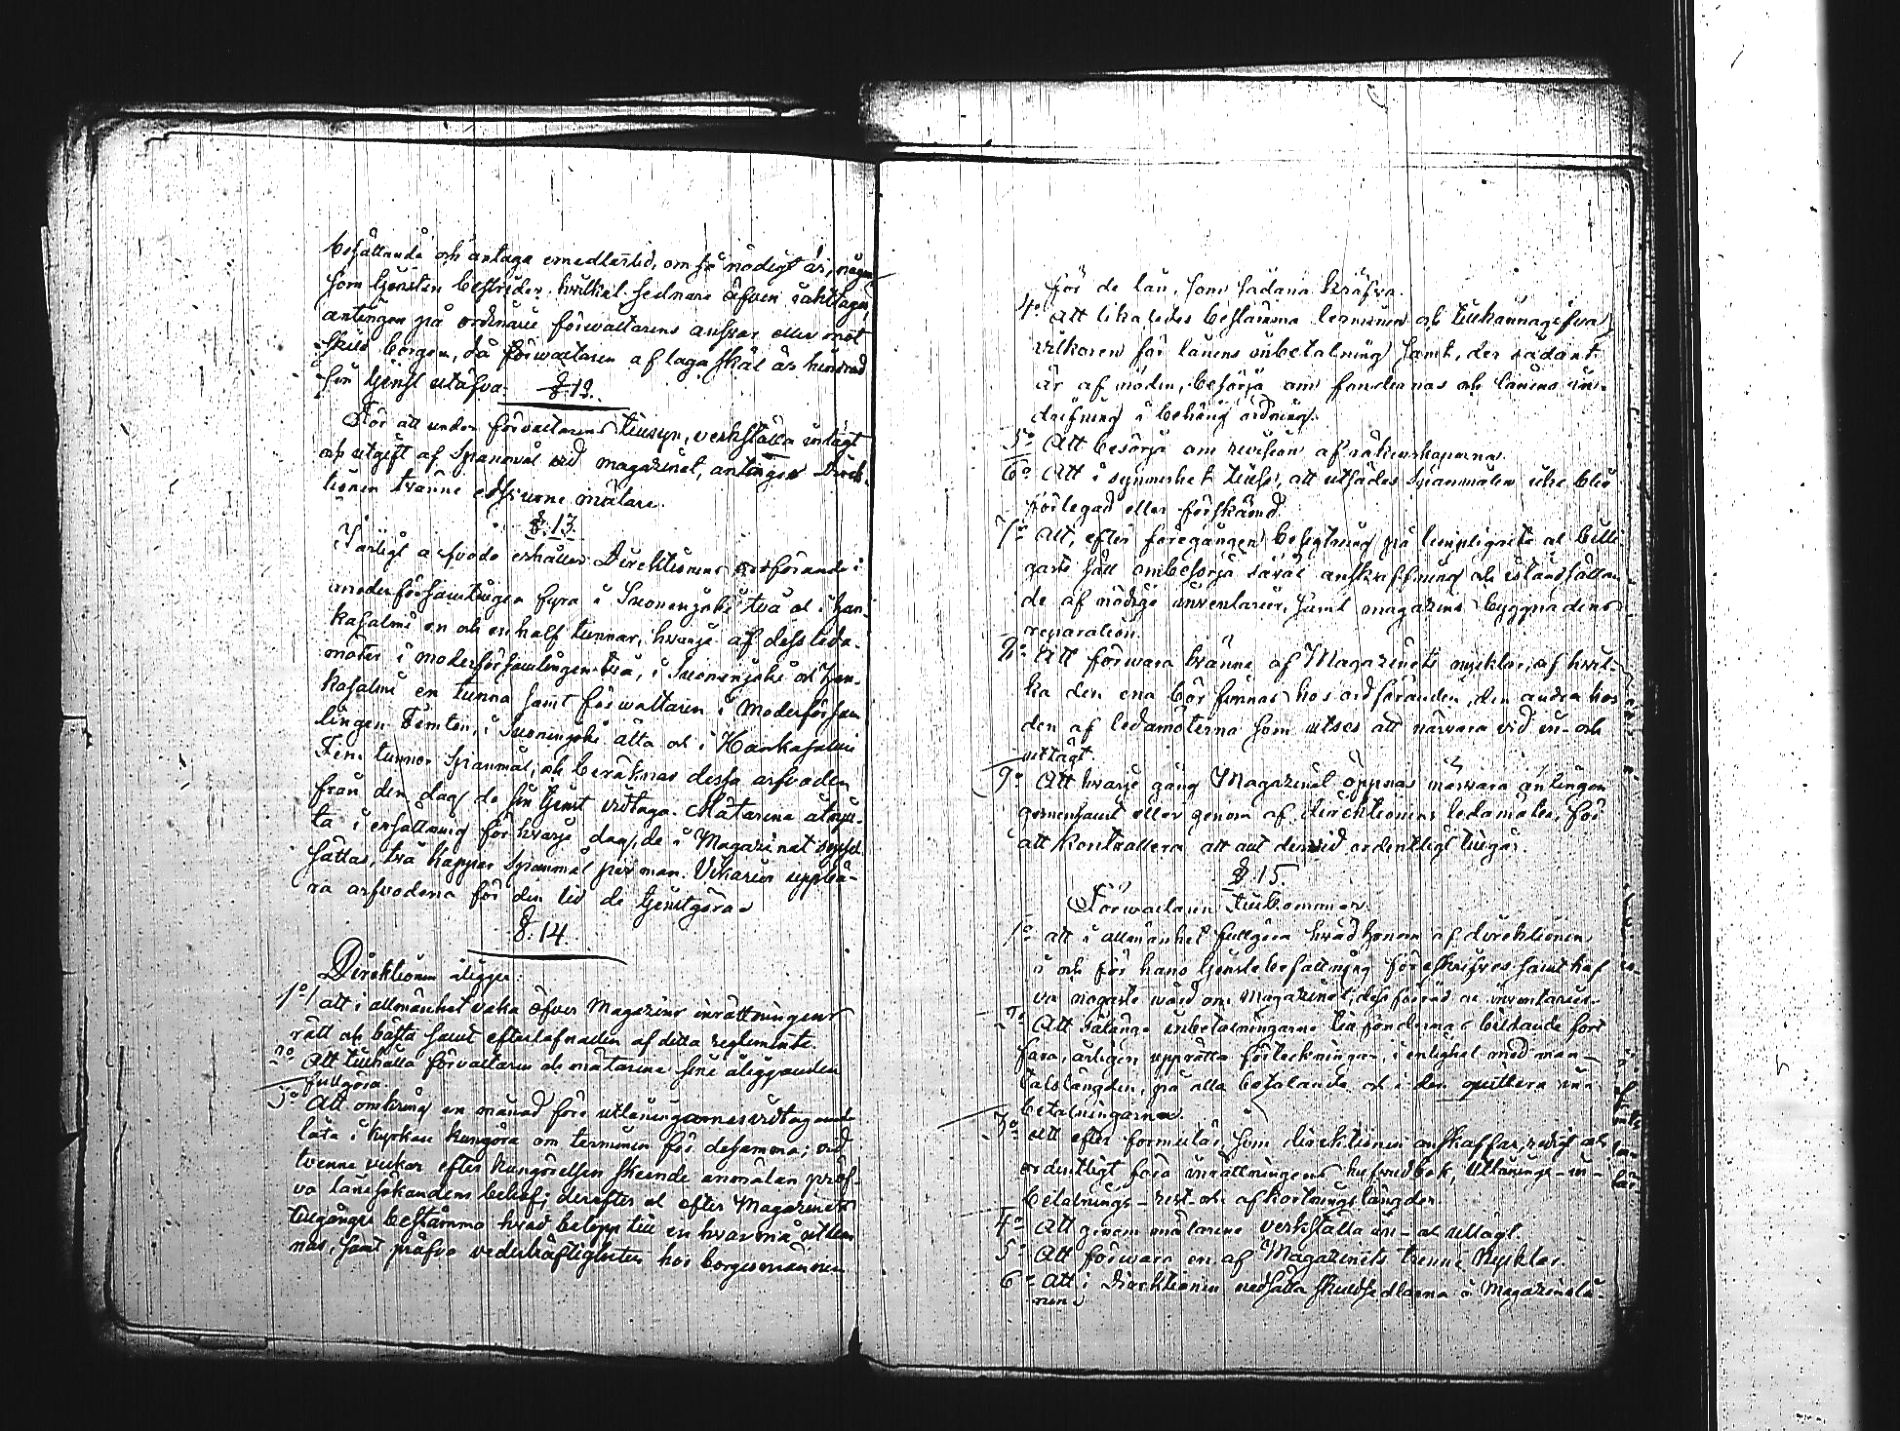 besättande och antaga emedlertid, om så nödigt är, någon
som tjensten bestrider hvilket sednare äfven iakttages
antingen på ordinarie förvaltarens ansvar eller mot
skild borgen, då förvaltaren af laga skäl är hindrad
sin tjenst utöfva.
§ 12.
För att under förvaltarens tillsyn, verkställa intägt
och utgift af Spanmål vid magazinet, antager Direk-
tionen tvänne edsvurne mätare.
§. 13.
Årligt arfvode erhåller Direktionens ordförande i
moderförsamlingen fyra i Suonenjoki två och i Han-
kasalmi en och en half tunnor, hvarje af dess leda-
möter i moderförsamlingen två, i Suonenjoki och Han-
kasalmi en tunna samt förvaltaren i Moderförsam
lingen Femton, i Suonenjoki åtta och i Hankasalmi
Fem tunnor Spanmål, och beräknas dessa arfvoden
från den dag de sin tjenst vidtaga. Mätarena åtnju-
ta i ersättning för hvarje dag, de i Magazinet syssel-
sättas, två kappar Spanmål per man. Vikarier uppbä-
ra arfvodena för den tid de tjenstgöra.
§. 14
Direktionen åligger:
1o/ att i allmänhet vaka öfver Magazins inrättningens
rätt och bästa samt efterlefnaden af detta reglemente.
2o Att tillhålla förvaltaren och mätarena sine åligganden
fullgöra.
3o Att omkring en månad före utlåningarnes vidtagande
låta i kyrkan kungöra om terminen för desamma; vid
tvenne veckor efter kungörelsen skeende anmälan pröf-
va lånesökandens behof; derefter och efter Magazinets
tillgångar bestämma hvad belopp till en hvar må utlem
nas, samt pröfva vederhäftigheten hos borgesmännen
för de lån, som sådana kräfva.
4o Att likaledes bestämma terminen och tillkännagifva
vilkoren för lånens inbetalning samt, der sådant
är af nöden, besörja om fondernas och lånens in-
drifning i behörig ordning.
5o Att besörja om revision af räkenskaperna.
6o Att i synnerhet tillse, att utsädes Spanmålen icke blir
förlegad eller förskämd.
7o Att, efter föregången besigtning på lämpligaste och billi-
gaste sätt ombesörja såväl anskaffning och iståndsättan-
de af nödige inventarier, samt magazins byggnadens
reparation.
8o Att förvara tvänne af Magazinets nycklar, af hvil-
ka den ena bör finnas hos ordföranden, den andra hos
den af ledamöterna som utses att närvara vid in- och
uttägt.
9o Att hvarje gång Magazinet öppnas närvara antingen
gemensamt eller genom af direktionens ledamöter, för
att kontrollera att allt dervid ordentligt tillgår.
§. 15
Förvaltaren tillkommer:
1o att i allmänhet fullgöra hvad honom af direktionen
i och för hans tjenstebefattning föreskrifves samt haf
va nogaste vård om Magazinet, dess förråd och inventarier.
2o Att sålänge inbetalningarne till fondernas bildande fort
fara, årligen upprätta förteckningar, i enlighet med man-
talslängden, på alla betalande och i den quittera in-
betalningarna.
3o Att efter formulär, som direktionen anskaffar, redigt och
ordentligt föra inrättningens hufvudbok, Utlånings- in-
betalnings- rest- och afkortningslängder.
4o Att genom mätarene verkställa in- och uttägt.
5o Att förvara en af Magazinets trenne Nycklar.
6o Att i Direktionen uedsätta skuldsedlarna å Magazinslå-
nen.